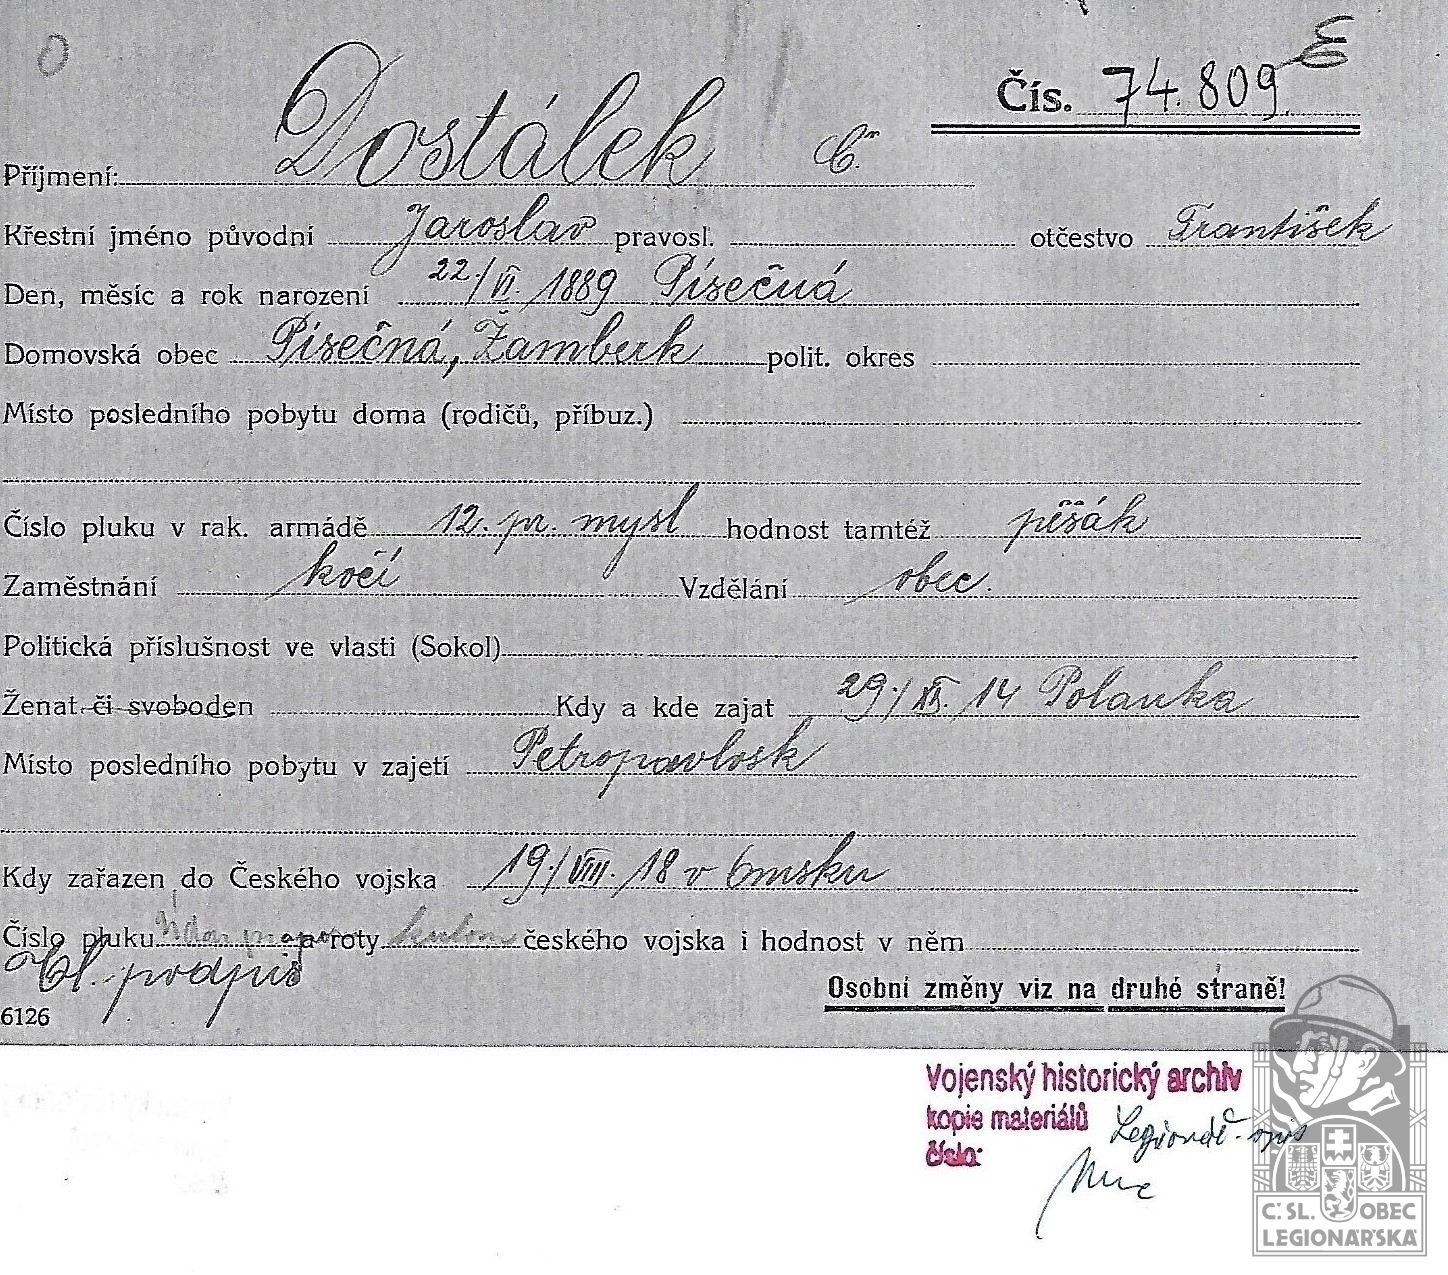 Čís. 74.809 E
Příjmení: Dostálek Č.
Křestní jméno původní Jaroslav pravosl. otčestvo František
Den, měsíc a rok narození 22./VI. 1889 Písečná
Domovská obec Písečná, Žamberk polit. okres
Místo posledního pobytu doma (rodičů, příbuz.)
Číslo pluku v rak. armádě 12. pr. mysl hodnost tamtéž pěšák
Zaměstnání kočí Vzdělání obec.
Politická příslušnost ve vlasti (Sokol)
Ženat či svoboden Kdy a kde zajat 29./XI. 14 Polanka
Místo posledního pobytu v zajetí Petropavlosk
Kdy zařazen do Českého vojska 19./VIII. 18 v Omsku
Číslo pluku Údar. prapor a roty kulom českého vojska i hodnost v něm
Vl. podpis
Osobní změny viz na druhé straně!
6126
Vojenský historický archiv
kopie materiálů Legionář. opis
číslo:
Č. SL. OBEC
LEGIONÁŘSKÁ